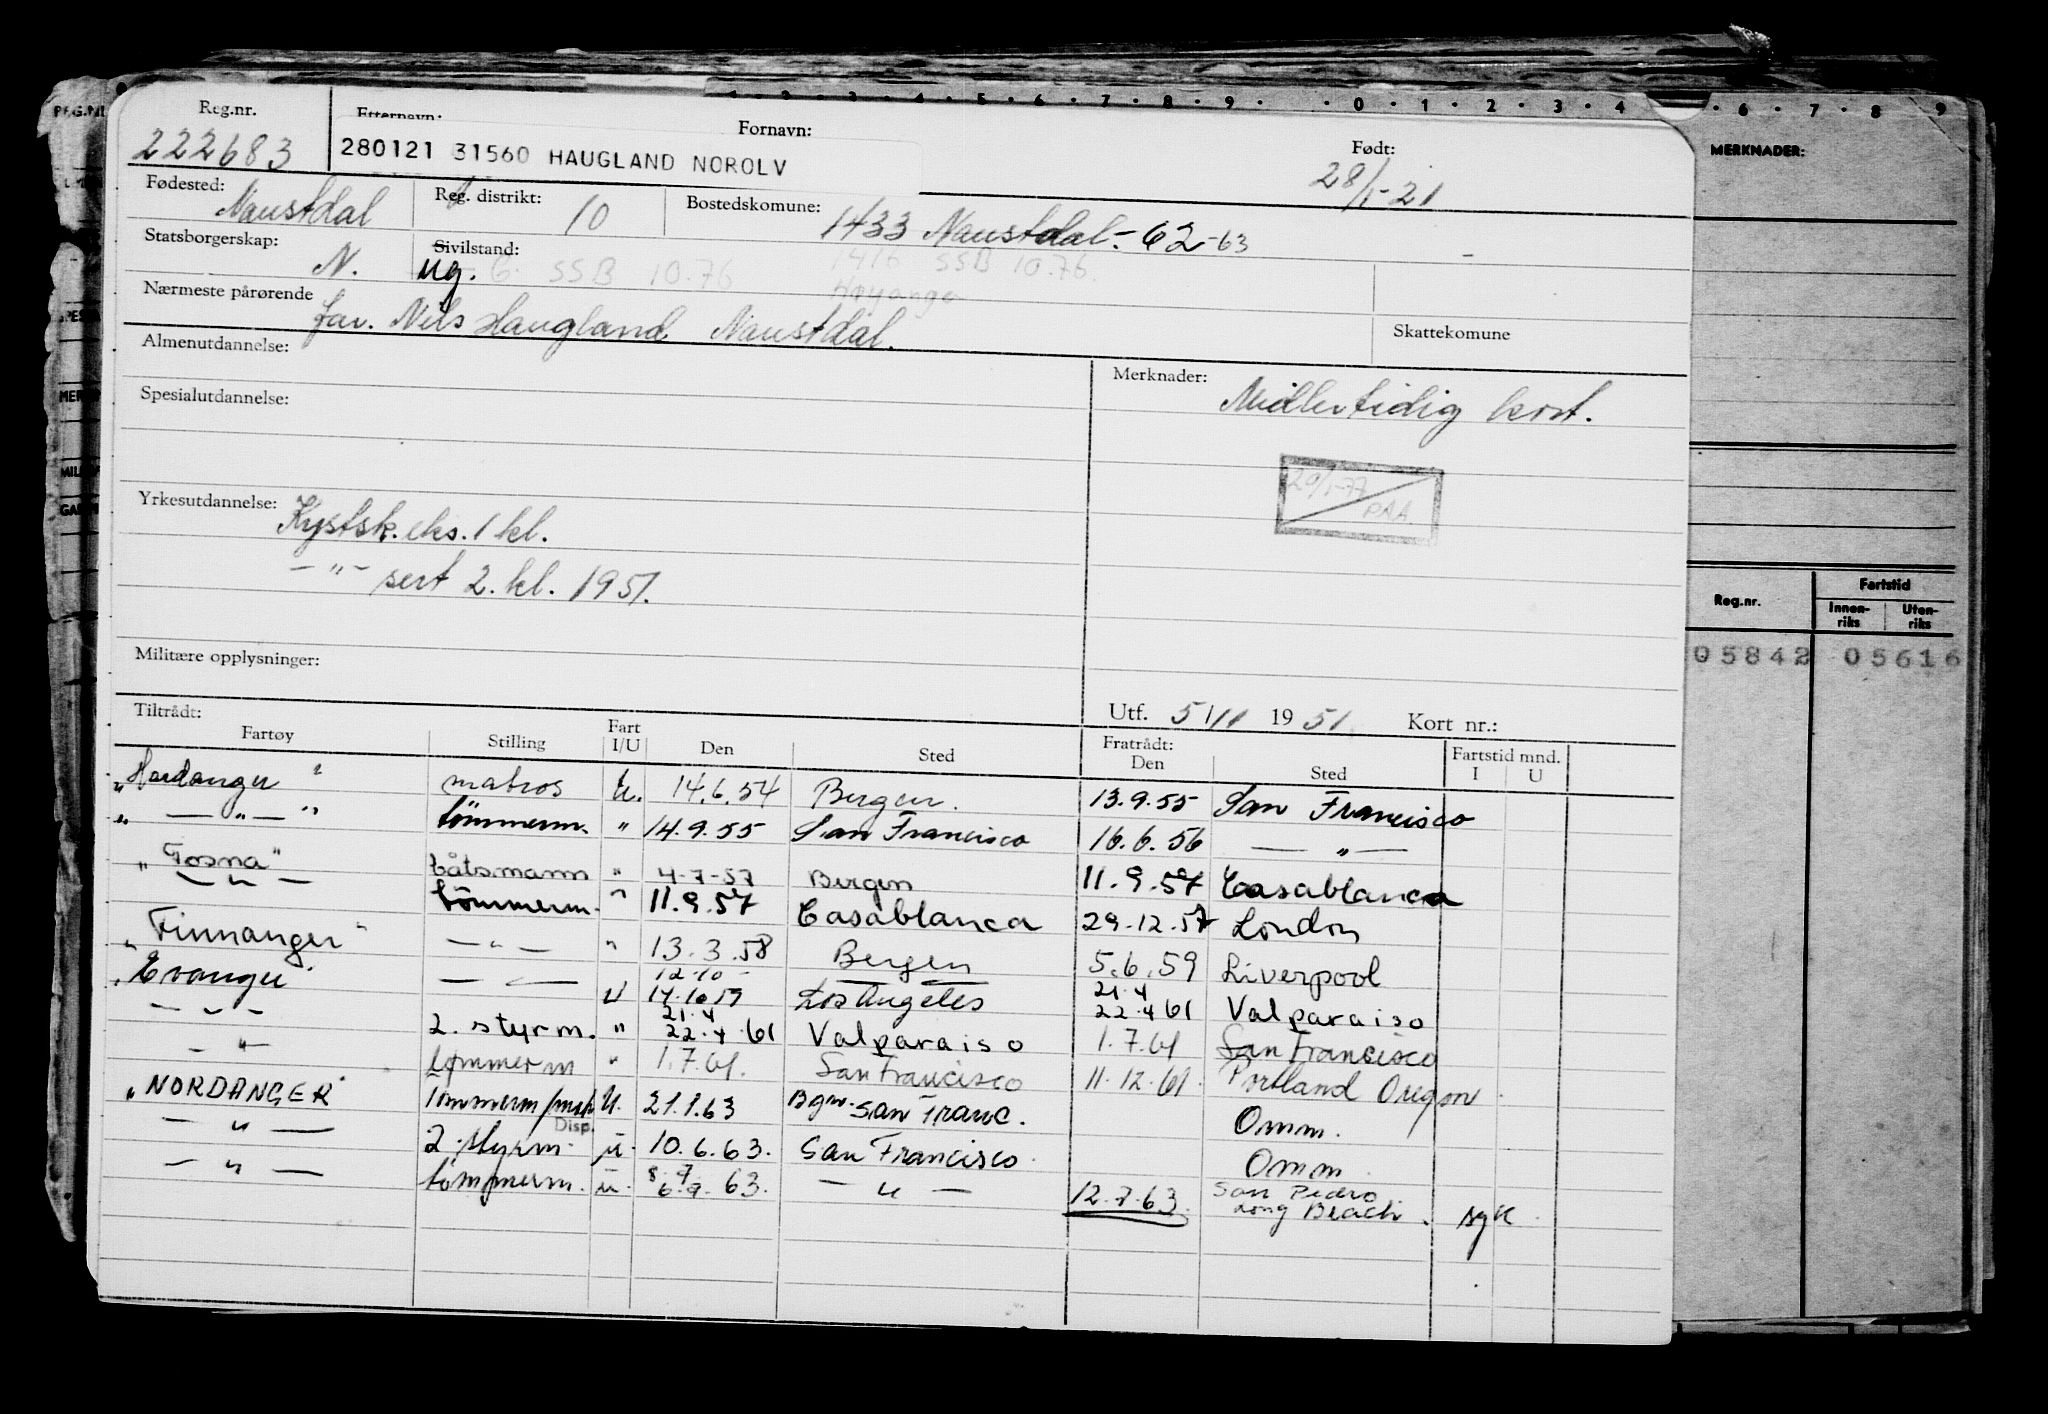 1 · 2 · 3 · 4 · 5 · 6 · 7 · 8 · 9 · 0 · 1 · 2 · 3 · 4 · 6 · 7 · 8 · 9
Reg.nr. Etternavn: Fornavn: Født:
222683 280121 31560 HAUGLAND NOROLV 28/1-21
Fødested: Naustdal Reg. distrikt: 10 Bostedskomune: 1433 Naustdal.-62-63
Statsborgerskap: N. Sivilstand: ug. G. SSB 10.76 1416 SSB 10.76.
Høyanger
Nærmeste pårørende far. Nils Haugland Naustdal.
Skattekomune
Almenutdannelse:
Merknader: Midlertidig kort.
Spesialutdannelse:
20/1-77
PAA.
Yrkesutdannelse: Kystsk. eks. 1 kl.
-"- sert 2. kl. 1951.
Militære opplysninger:
Utf. 5/11 1951. Kort nr.:
Tiltrådt: Fratrådt:
Fartøy Stilling Fart I/U Den Sted Den Sted Fartstid mnd. I U
"Hardanger" matros U. 14.6.54 Bergen. 13.9.55 San Francisco
" — " — " tömmerm. " 14.9.55 San Francisco 16.6.56 — " —
"Fosna" båtsmann " 4-7-57 Bergen 11.9.57 Casablanca
— " — tömmerm. " 11.9.57 Casablanca 29.12.57 London
"Finnanger" — " — " 13.3.58 Bergen 5.6.59 Liverpool
"Evanger" — " — U 12.10 - 14.10.59 Los Angeles 21.4 22.4 61 Valparaiso
— " — 2. styrm. " 21.4 22.4.61 Valparaiso 1.7.61 San Francisco
— " — tømmerm " 1.7.61. San Francisco 11.12.61. Portland Oregon.
"NORDANGER" Tømmerm U. 21.1.63 Bgn. San Franc. Omm.
Disp.
— " — 2. styrm. u. 10.6.63. San Francisco. Omm
— " — tømmerm. u. 63. — " — 12.7.63. San Pedro
Long Beach. syk.
MERKNADER:
Reg.nr. Fartstid
Innen-riks Uten-riks
05842 05616